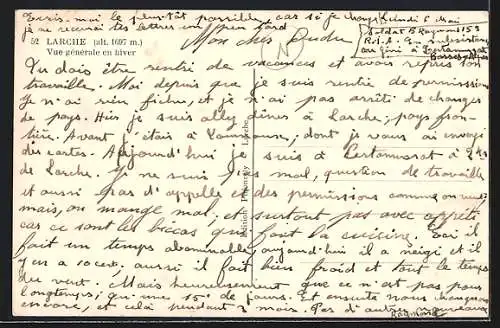 Ecris-moi le plus tôt possible, car si je change
je recevrai tes lettres un peu tard
Lundi 6 Mai
Soldat Raymond 153
R.I.A. en subsistance
au Génie à Certamussat
Basses-Alpes
52 LARCHE (alt. 1697 m.)
Vue générale en hiver
Mon cher André
Tu dois être rentré de vacances et avoir repris ton
travail. Moi depuis que je suis rentré de permission
je n'ai rien fichu, et je n'ai pas arrêté de changer
de pays. Hier je suis allé dîner à Larche, pays fron-
tière. Avant j'étais à dont je vous ai envoyé
des cartes. Aujourd'hui je suis à Certamussat à 2 km
de Larche. Je ne suis pas mal, question de travail
et aussi pas d'appels et des permissions comme on veut,
mais, on mange mal, et surtout pas avec appétit
car ce sont les qui font la cuisine. Ici il
fait un temps abominable, aujourd'hui il a neigé et il
y en a 10 cent, aussi il fait bien froid et tout le temps
du vent. Mais heureusement que ce n'est pas pour
longtemps, qu'une 15e de jours. Et ensuite nous changeons
encore, et cela pendant 2 mois. Pas d'autre nouveau
Raymond
Larche